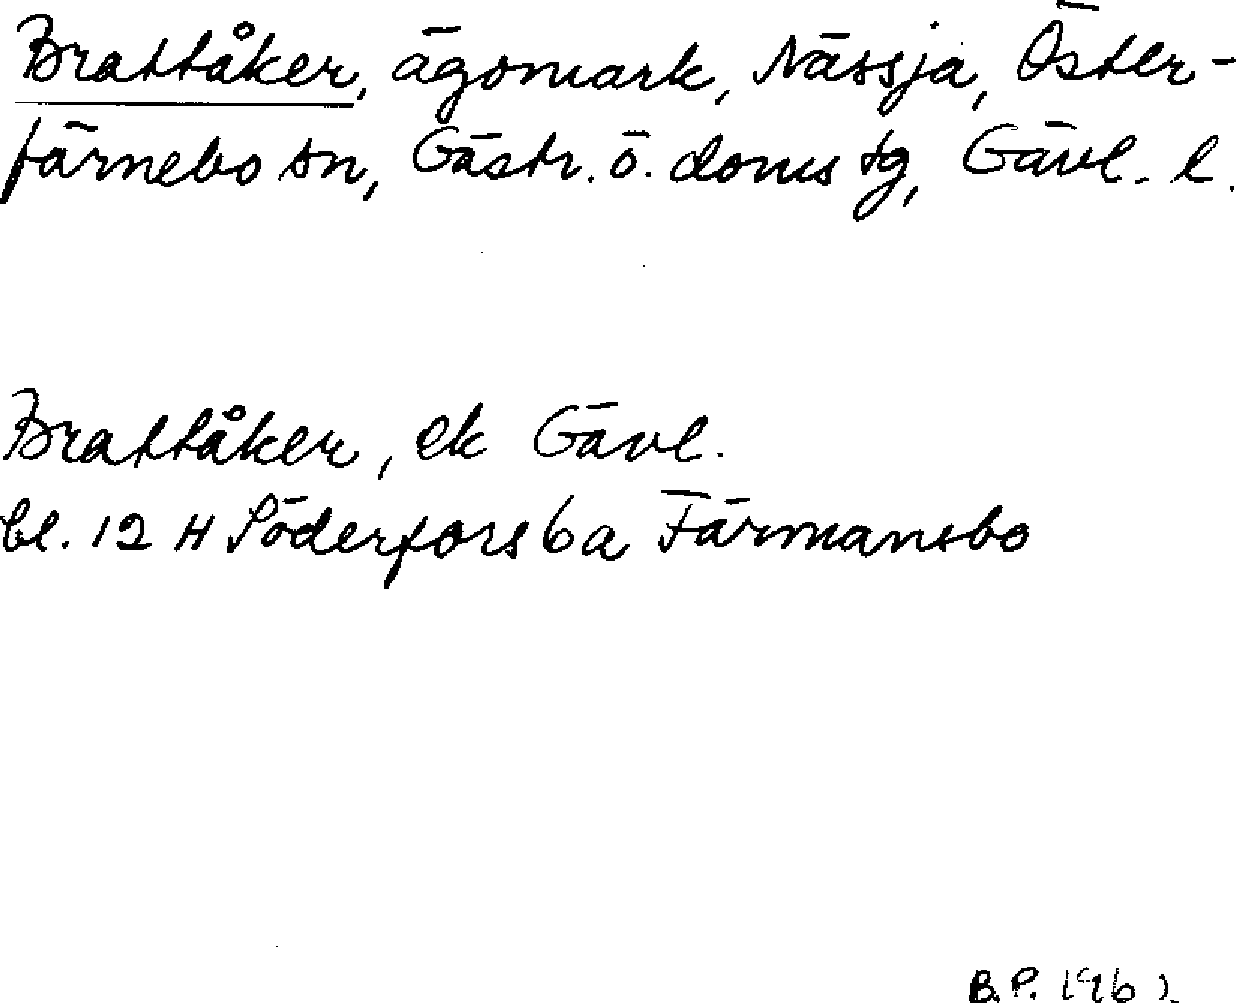 Brattåker, ägomark, Nässja, Öster-
färnebo sn, Gästr. ö. doms tg, Gävl. l.
Brattåker, ek Gävl.
bl. 12 H Söderfors 6 a Färmansbo
B.P. 1962